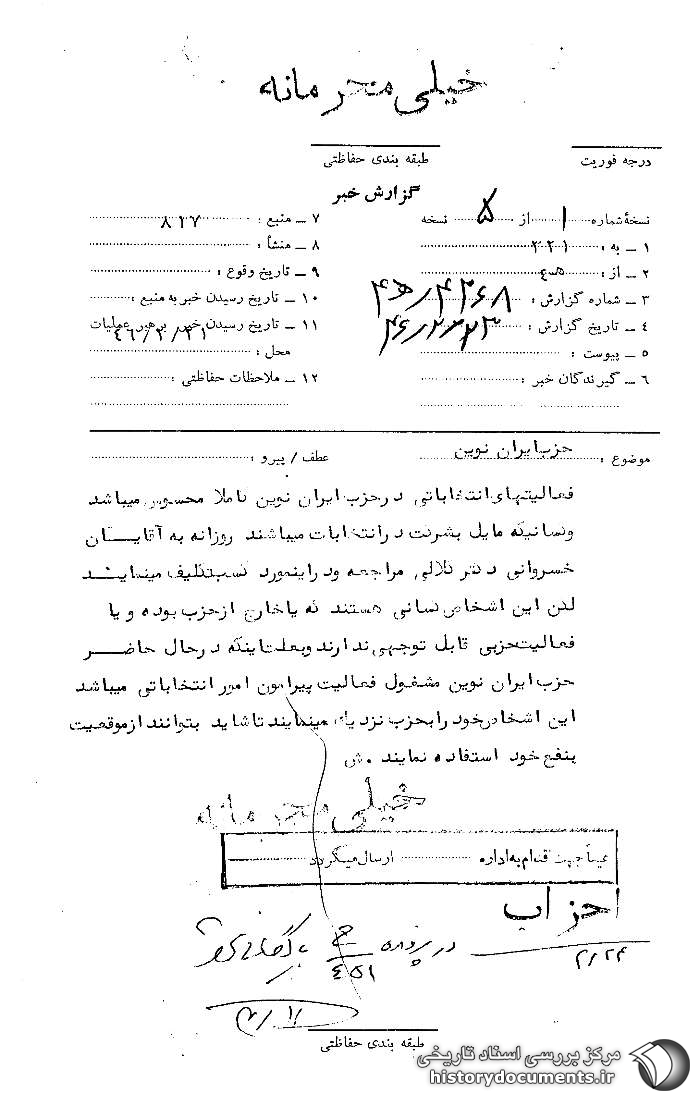 خیلی محرمانه
درجه فوریت
طبقه بندی حفاظتی
گزارش خبر
نسخهٔ شماره ۱ از ۵ نسخه
۱ ــ به : ۲۲۱
۲ ــ از : ۴ هـ
۳ ــ شماره گزارش :
۴ ــ تاریخ گزارش : ۴۶/۲/۲۳
۵ ــ پیوست :
۶ ــ گیرندگان خبر :
۷ ــ منبع : ۸۲۷
۸ ــ منشأ :
۹ ــ تاریخ وقوع :
۱۰ ــ تاریخ رسیدن خبر به منبع :
۱۱ ــ تاریخ رسیدن خبر برهبر عملیات
۴۶/۲/۲۱
محل :
۱۲ ــ ملاحظات حفاظتی :
موضوع : حزب ایران نوین
عطف / پیرو :
فعالیتهای انتخاباتی در حزب ایران نوین کاملا محسوس میباشد
وکسانیکه مایل بشرکت در انتخابات میباشند روزانه به آقایان
خسروانی دکتر کلالی مراجعه ودر اینمورد کسب تکلیف مینمایند
لکن این اشخاص کسانی هستند که یا خارج از حزب بوده و یا
فعالیت حزبی قابل توجهی ندارند وبعلت اینکه در حال حاضر
حزب ایران نوین مشغول فعالیت پیرامون امور انتخاباتی میباشد
این اشخاص خود را بحزب نزدیک مینمایند تا شاید بتوانند از موقعیت
بنفع خود استفاده نمایند . ش
خیلی محرمانه
عیناً جهت اقدام به اداره ارسال میگردد
احزاب
۲/۲۴
در پرونده
بایگانی شود
طبقه بندی حفاظتی
مرکز بررسی اسناد تاریخی
historydocuments.ir